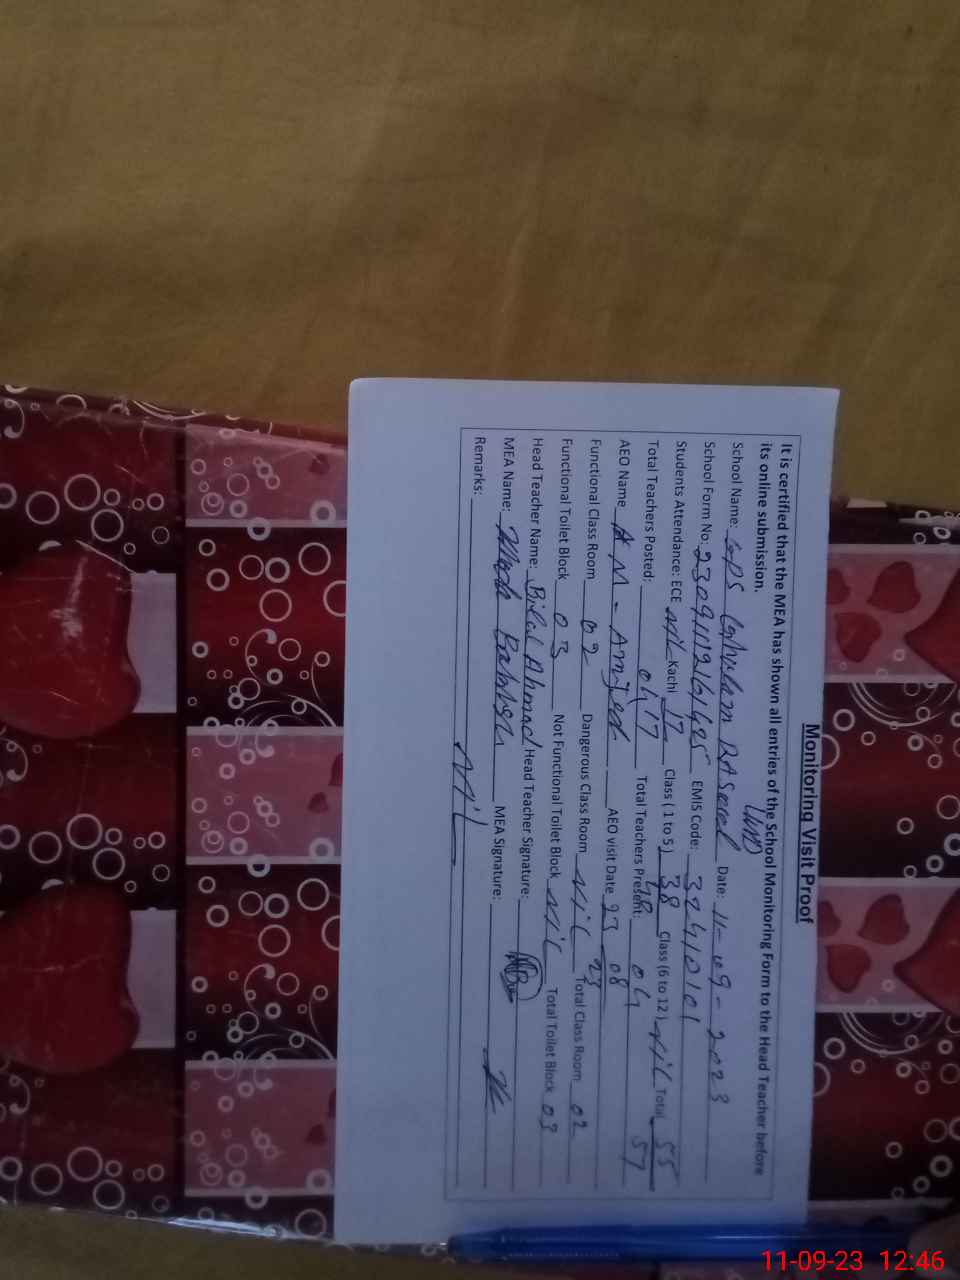 Monitoring Visit Proof
It is certified that the MEA has shown all entries of the School Monitoring Form to the Head Teacher before
its online submission.
School Name: GPS Ghulam RAsool Date: 11-09-2023
School Form No: EMIS Code: 32410101
Students Attendance: ECE NiL Kachi 17 Class ( 1 to 5 ) 38 Class (6 to 12 ) NiL Total 55
Total Teachers Posted: 04 17 Total Teachers Present: 04 57
AEO Name A M - Amjed AEO visit Date 23 08 23
Functional Class Room 02 Dangerous Class Room NiL Total Class Room 02
Functional Toilet Block 03 Not Functional Toilet Block NiL Total Toilet Block 03
Head Teacher Name: Bilal Ahmad Head Teacher Signature:
MEA Name: MEA Signature:
Remarks: NiL
11-09-23 12:46